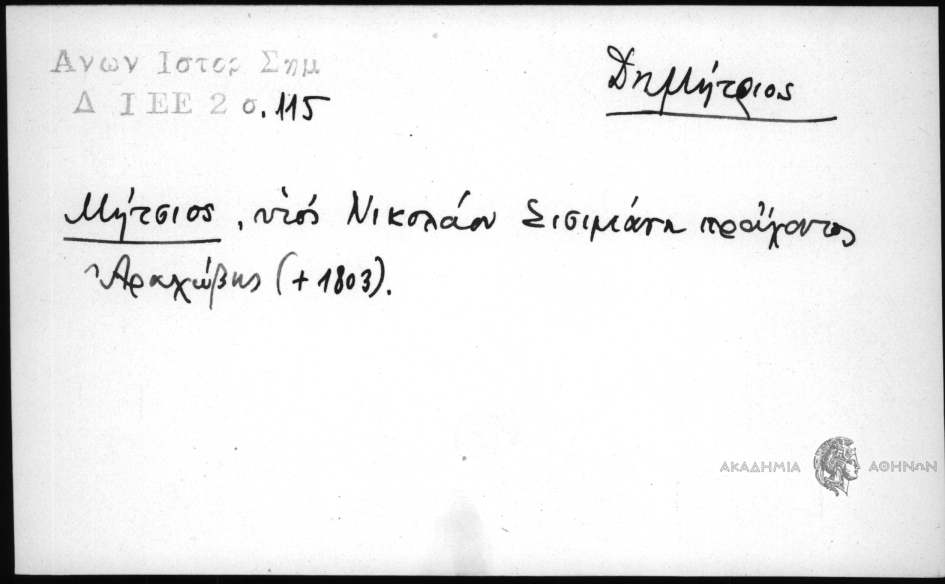 Ανων Ιστορ Σημ
Δ ΙΕΕ 2 σ. 115
Δημήτριος
Μήτσιος, υἱός Νικολάου Σισιμάνη προὔχοντος
Ἀραχώβης (+ 1803).
ΑΚΑΔΗΜΙΑ ΑΘΗΝΩΝ